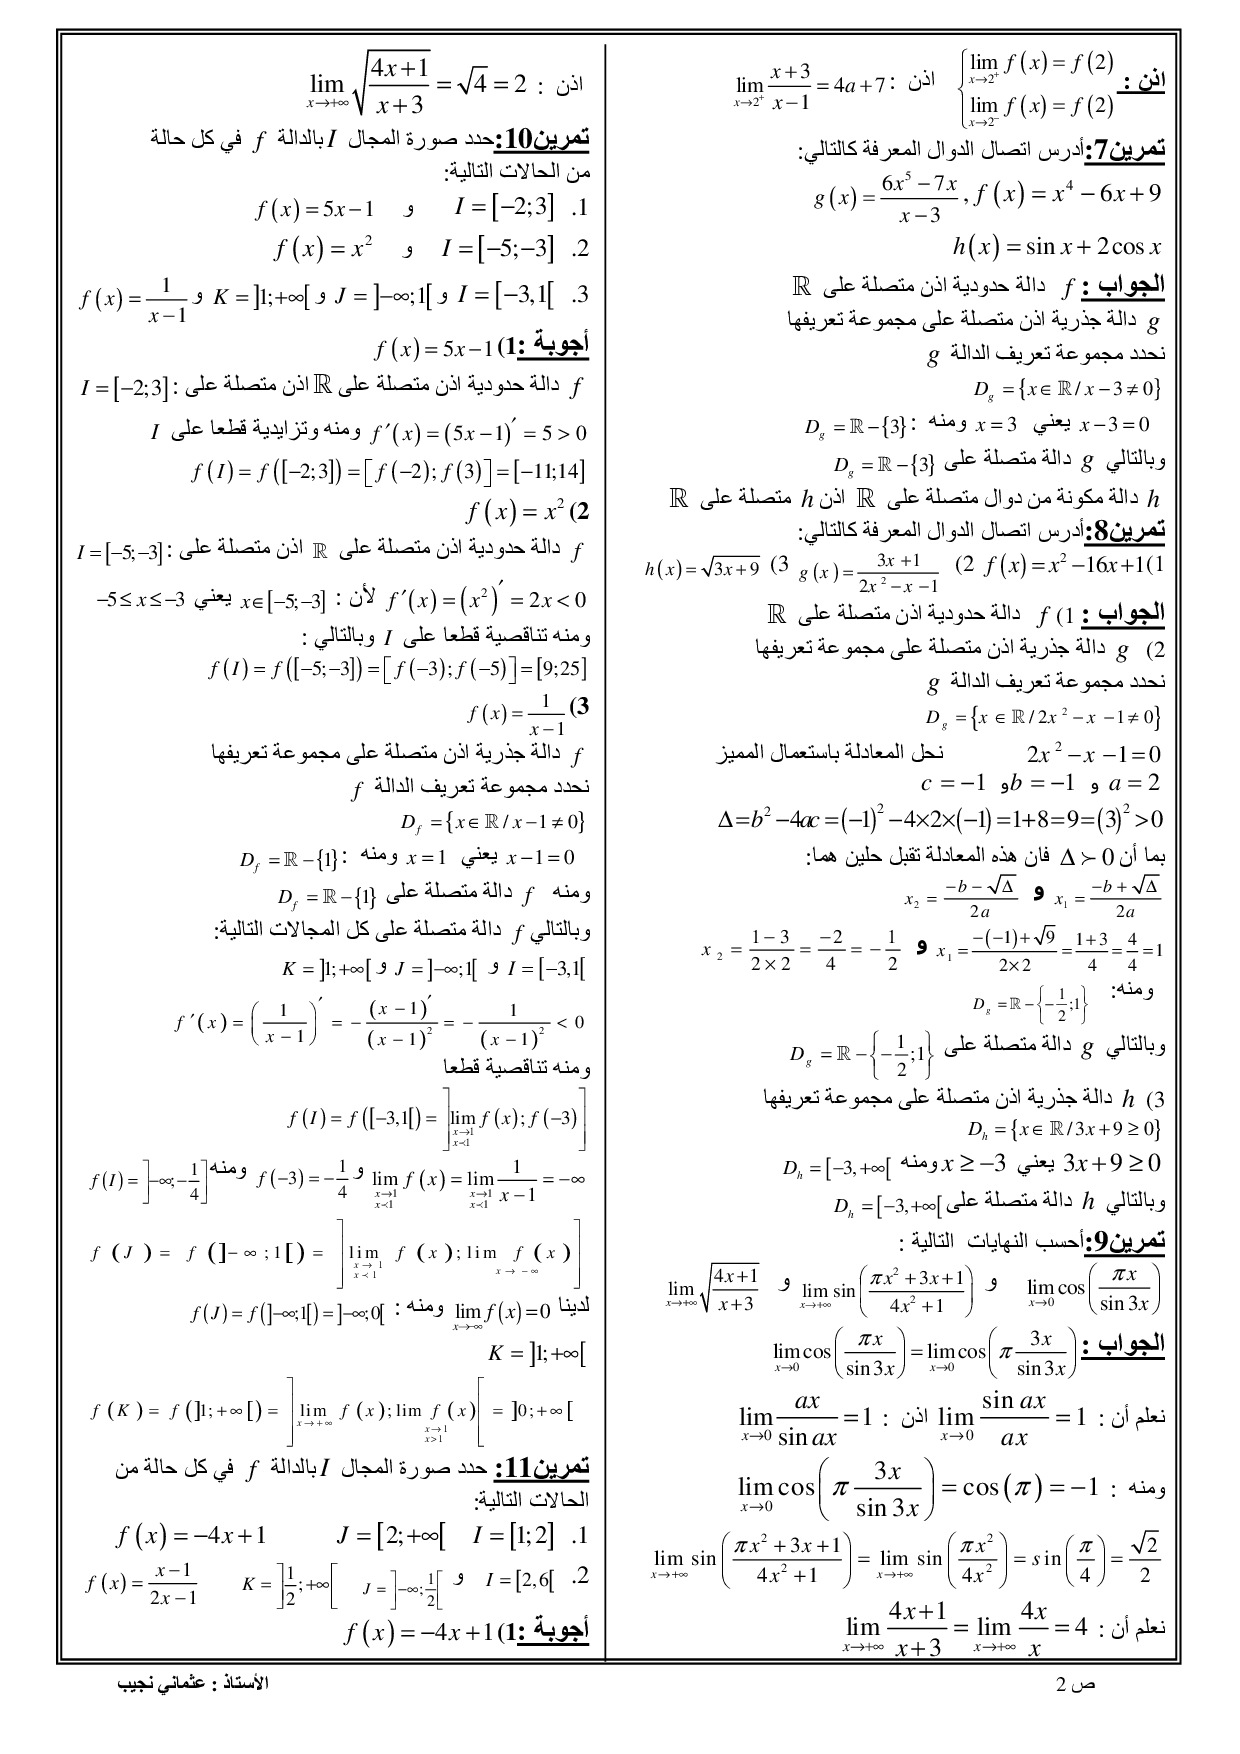 اذن : $\begin{cases} \lim_{x \to 2^+} f(x) = f(2) \\ \lim_{x \to 2^-} f(x) = f(2) \end{cases}$ اذن : $\lim_{x \to 2^+} \frac{x+3}{x-1} = 4a+7$
تمرين7:أدرس اتصال الدوال المعرفة كالتالي:
$g(x) = \frac{6x^5-7x}{x-3}$ , $f(x) = x^4-6x+9$
$h(x) = \sin x + 2\cos x$
الجواب : $f$ دالة حدودية اذن متصلة على $\mathbb{R}$
$g$ دالة جذرية اذن متصلة على مجموعة تعريفها
نحدد مجموعة تعريف الدالة $g$
$D_g = \{x \in \mathbb{R} / x-3 \neq 0\}$
$x-3=0$ يعني $x=3$ ومنه : $D_g = \mathbb{R}-\{3\}$
وبالتالي $g$ دالة متصلة على $D_g = \mathbb{R}-\{3\}$
$h$ دالة مكونة من دوال متصلة على $\mathbb{R}$ اذن $h$ متصلة على $\mathbb{R}$
تمرين8:أدرس اتصال الدوال المعرفة كالتالي:
1) $f(x) = x^2-16x+1$ 2) $g(x) = \frac{3x+1}{2x^2-x-1}$ 3) $h(x) = \sqrt{3x+9}$
الجواب : 1) $f$ دالة حدودية اذن متصلة على $\mathbb{R}$
2) $g$ دالة جذرية اذن متصلة على مجموعة تعريفها
نحدد مجموعة تعريف الدالة $g$
$D_g = \{x \in \mathbb{R} / 2x^2-x-1 \neq 0\}$
$2x^2-x-1=0$ نحل المعادلة باستعمال المميز
$a=2$ و $b=-1$ و $c=-1$
$\Delta = b^2-4ac = (-1)^2-4\times2\times(-1) = 1+8 = 9 = (3)^2 > 0$
بما أن $\Delta \succ 0$ فان هذه المعادلة تقبل حلين هما:
$x_1 = \frac{-b+\sqrt{\Delta}}{2a}$ و $x_2 = \frac{-b-\sqrt{\Delta}}{2a}$
$x_1 = \frac{-(-1)+\sqrt{9}}{2\times2} = \frac{1+3}{4} = \frac{4}{4} = 1$ و $x_2 = \frac{1-3}{2\times2} = \frac{-2}{4} = -\frac{1}{2}$
ومنه: $D_g = \mathbb{R}-\{-\frac{1}{2};1\}$
وبالتالي $g$ دالة متصلة على $D_g = \mathbb{R}-\{-\frac{1}{2};1\}$
3) $h$ دالة جذرية اذن متصلة على مجموعة تعريفها
$D_h = \{x \in \mathbb{R} / 3x+9 \geq 0\}$
$3x+9 \geq 0$ يعني $x \geq -3$ ومنه $D_h = [-3,+\infty[$
وبالتالي $h$ دالة متصلة على $D_h = [-3,+\infty[$
تمرين9:أحسب النهايات التالية :
$\lim_{x \to 0} \cos\left(\frac{\pi x}{\sin 3x}\right)$ و $\lim_{x \to +\infty} \sin\left(\frac{\pi x^2+3x+1}{4x^2+1}\right)$ و $\lim_{x \to +\infty} \sqrt{\frac{4x+1}{x+3}}$
الجواب : $\lim_{x \to 0} \cos\left(\frac{\pi x}{\sin 3x}\right) = \lim_{x \to 0} \cos\left(\pi \frac{3x}{\sin 3x}\right)$
نعلم أن : $\lim_{x \to 0} \frac{\sin ax}{ax} = 1$ اذن : $\lim_{x \to 0} \frac{ax}{\sin ax} = 1$
ومنه : $\lim_{x \to 0} \cos\left(\pi \frac{3x}{\sin 3x}\right) = \cos(\pi) = -1$
$\lim_{x \to +\infty} \sin\left(\frac{\pi x^2+3x+1}{4x^2+1}\right) = \lim_{x \to +\infty} \sin\left(\frac{\pi x^2}{4x^2}\right) = \sin\left(\frac{\pi}{4}\right) = \frac{\sqrt{2}}{2}$
نعلم أن : $\lim_{x \to +\infty} \frac{4x+1}{x+3} = \lim_{x \to +\infty} \frac{4x}{x} = 4$
اذن : $\lim_{x \to +\infty} \sqrt{\frac{4x+1}{x+3}} = \sqrt{4} = 2$
تمرين10:حدد صورة المجال $I$ بالدالة $f$ في كل حالة
من الحالات التالية:
1. $I = [-2;3]$ و $f(x) = 5x-1$
2. $I = [-5;-3]$ و $f(x) = x^2$
3. $I = [-3,1[$ و $J = ]-\infty;1[$ و $K = ]1;+\infty[$ و $f(x) = \frac{1}{x-1}$
أجوبة :1) $f(x) = 5x-1$
$f$ دالة حدودية اذن متصلة على $\mathbb{R}$ اذن متصلة على : $I = [-2;3]$
$f'(x) = (5x-1)' = 5 > 0$ ومنه وتزايدية قطعا على $I$
$f(I) = f([-2;3]) = [f(-2);f(3)] = [-11;14]$
2) $f(x) = x^2$
$f$ دالة حدودية اذن متصلة على $\mathbb{R}$ اذن متصلة على : $I = [-5;-3]$
$f'(x) = (x^2)' = 2x < 0$ لأن : $x \in [-5;-3]$ يعني $-5 \leq x \leq -3$
ومنه تناقصية قطعا على $I$ وبالتالي :
$f(I) = f([-5;-3]) = [f(-3);f(-5)] = [9;25]$
3) $f(x) = \frac{1}{x-1}$
$f$ دالة جذرية اذن متصلة على مجموعة تعريفها
نحدد مجموعة تعريف الدالة $f$
$D_f = \{x \in \mathbb{R} / x-1 \neq 0\}$
$x-1=0$ يعني $x=1$ ومنه : $D_f = \mathbb{R}-\{1\}$
ومنه $f$ دالة متصلة على $D_f = \mathbb{R}-\{1\}$
وبالتالي $f$ دالة متصلة على كل المجالات التالية:
$I = [-3,1[$ و $J = ]-\infty;1[$ و $K = ]1;+\infty[$
$f'(x) = \left(\frac{1}{x-1}\right)' = -\frac{(x-1)'}{(x-1)^2} = -\frac{1}{(x-1)^2} < 0$
ومنه تناقصية قطعا
$f(I) = f([-3,1[) = \left]\lim_{x \to 1, x \prec 1} f(x); f(-3)\right]$
$\lim_{x \to 1, x \prec 1} f(x) = \lim_{x \to 1, x \prec 1} \frac{1}{x-1} = -\infty$ و $f(-3) = -\frac{1}{4}$ ومنه $f(I) = \left]-\infty;-\frac{1}{4}\right]$
$f(J) = f(]-\infty;1[) = \left]\lim_{x \to 1, x \prec 1} f(x); \lim_{x \to -\infty} f(x)\right]$
لدينا $\lim_{x \to -\infty} f(x) = 0$ ومنه : $f(J) = f(]-\infty;1[) = ]-\infty;0[$
$K = ]1;+\infty[$
$f(K) = f(]1;+\infty[) = \left]\lim_{x \to +\infty} f(x); \lim_{x \to 1, x > 1} f(x)\right[ = ]0;+\infty[$
تمرين11: حدد صورة المجال $I$ بالدالة $f$ في كل حالة من
الحالات التالية:
1. $I = [1;2]$ $J = [2;+\infty[$ $f(x) = -4x+1$
2. $I = [2,6[$ و $J = \left]-\infty;\frac{1}{2}\right[$ $K = \left]\frac{1}{2};+\infty\right[$ $f(x) = \frac{x-1}{2x-1}$
أجوبة :1) $f(x) = -4x+1$
ص 2
الأستاذ : عثماني نجيب